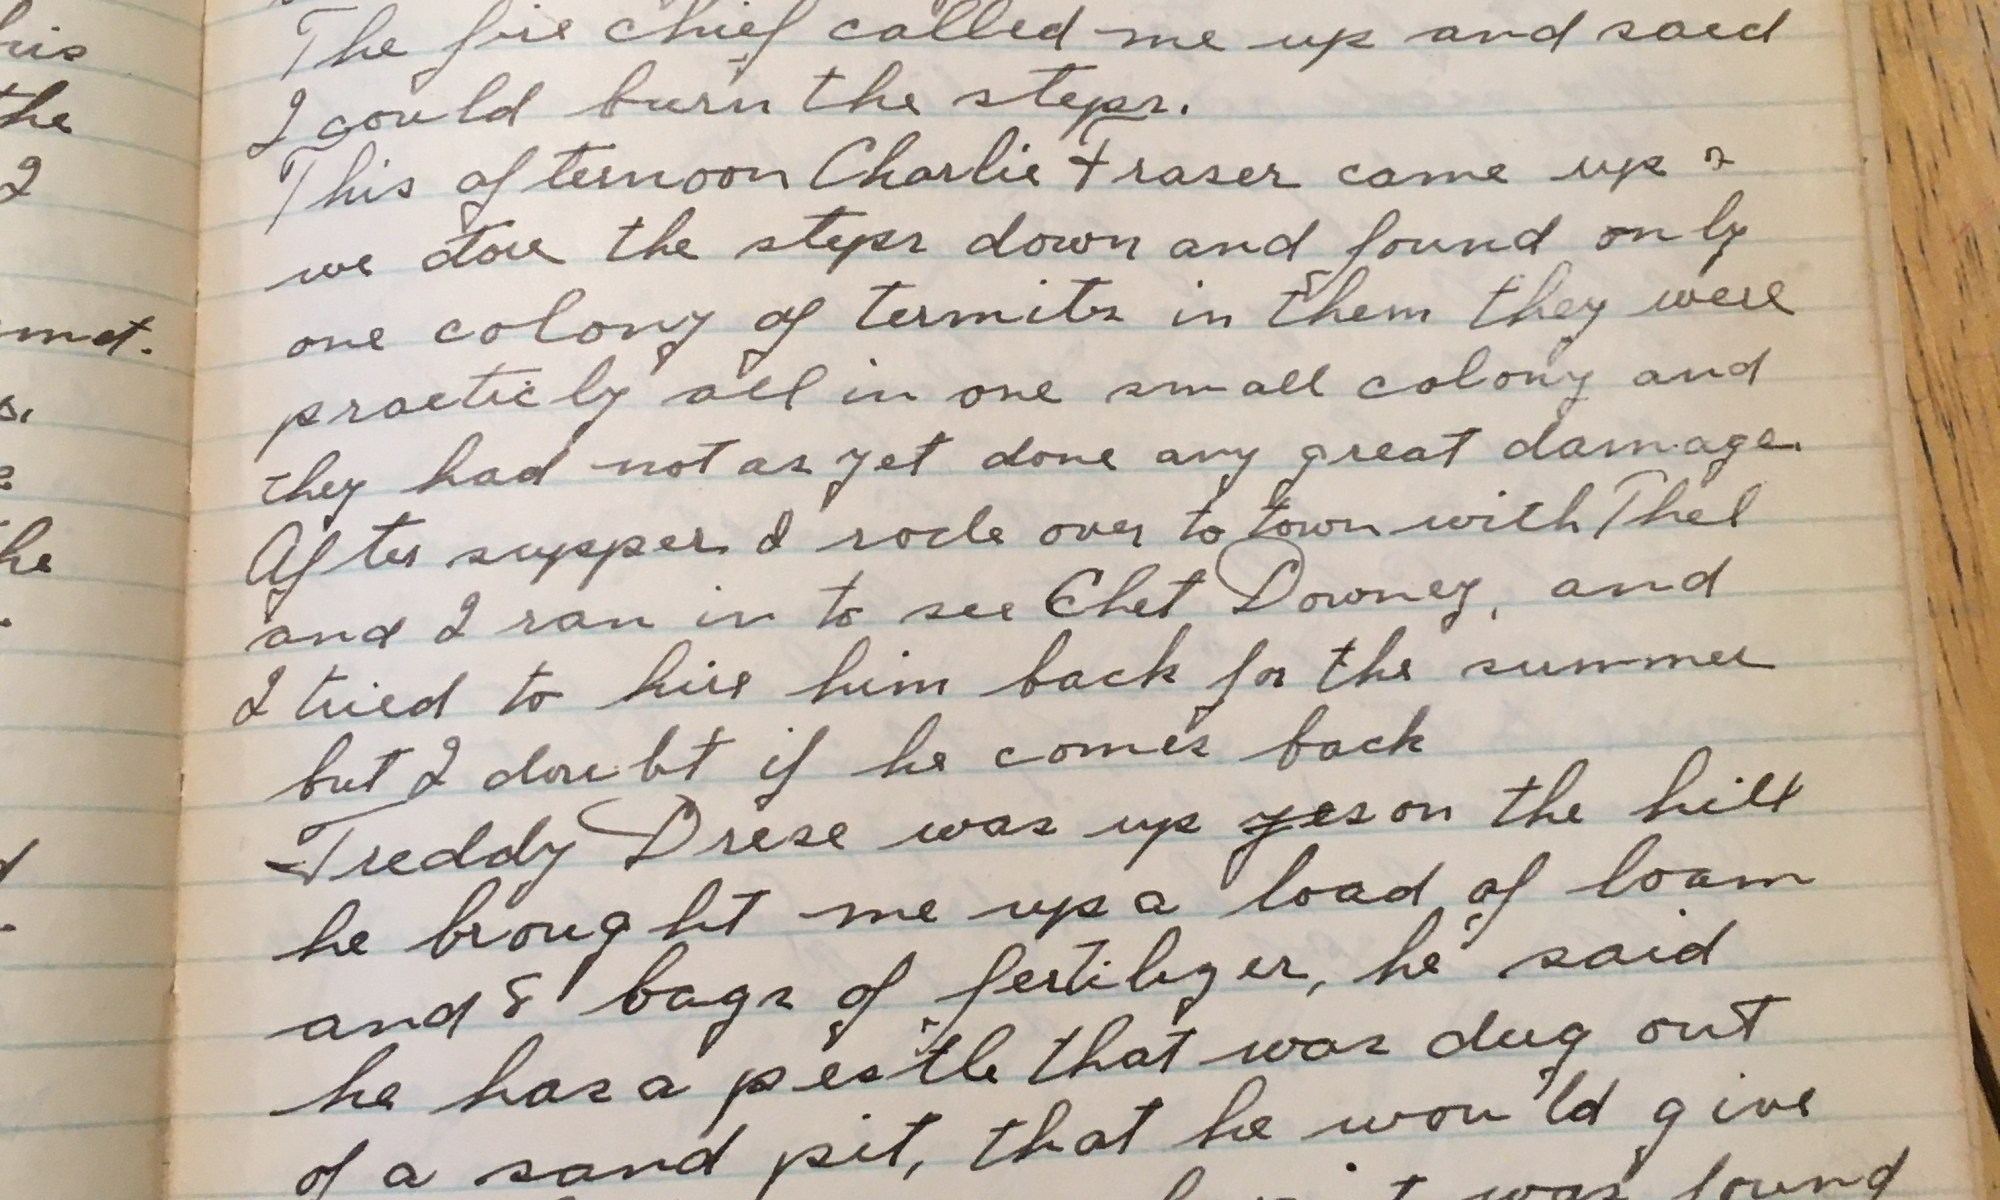 his
the
I
The fire chief called me up and said
I could burn the steps.
This afternoon Charlie Fraser came up &
we tore the steps down and found only
one colony of termits in them they were
practicly all in one small colony and
they had not as yet done any great damage.
After supper I rode over to town with Thel
and I ran in to see Chet Downey, and
I tried to hire him back for the summer
but I doubt if he comes back
Freddy Drese was up yes on the hill
he brought me up a load of loam
and 8 bags of fertilizer, he said
he has a pestle that was dug out
of a sand pit, that he would give
was found